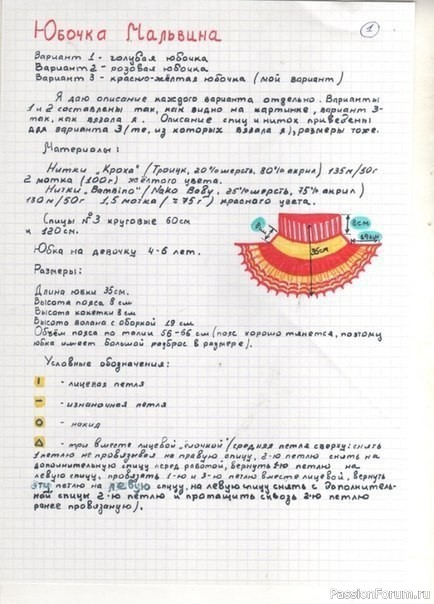 Юбочка Мальвина
1
Вариант 1 - голубая юбочка
Вариант 2 - розовая юбочка
Вариант 3 - красно-жёлтая юбочка (мой вариант)
Я даю описание каждого варианта отдельно. Варианты
1 и 2 составлены так, как видно на картинке, вариант 3-
так, как вязала я. Описание спиц и ниток приведены
для варианта 3 (те, из которых вязала я), размеры тоже.
Материалы:
Нитки "Кроха" (Троицк, 20% шерсть, 80% акрил) 135м/50г
2 мотка (100г) жёлтого цвета.
Нитки "Bambino" (Nako Baby, 25% шерсть, 75% акрил)
130м/50г 1,5 мотка (≈75г) красного цвета.
Спицы №3 круговые 60см
и 120см.
8см
35см
19см
Юбка на девочку 4-6 лет.
Размеры:
Длина юбки 35см.
Высота пояса 8см
Высота кокетки 8см
Высота волана с оборкой 19см
Объём пояса по талии 56-66см (пояс хорошо тянется, поэтому
юбка имеет большой разброс в размере).
Условные обозначения:
I - лицевая петля
- - изнаночная петля
O - накид
△ - три вместе лицевой "ёлочкой" (средняя петля сверху: снять
1 петлю не провязывая на правую спицу, 2-ю петлю снять на
дополнительную спицу перед работой, вернуть петлю на
левую спицу, провязать 1-ю и 3-ю петлю вместе лицевой, вернуть
эту петлю на левую спицу, на левую спицу снять с дополнитель-
ной спицы 2-ю петлю и протащить сквозь 2-ю петлю
ранее провязанную).
PassionForum.ru